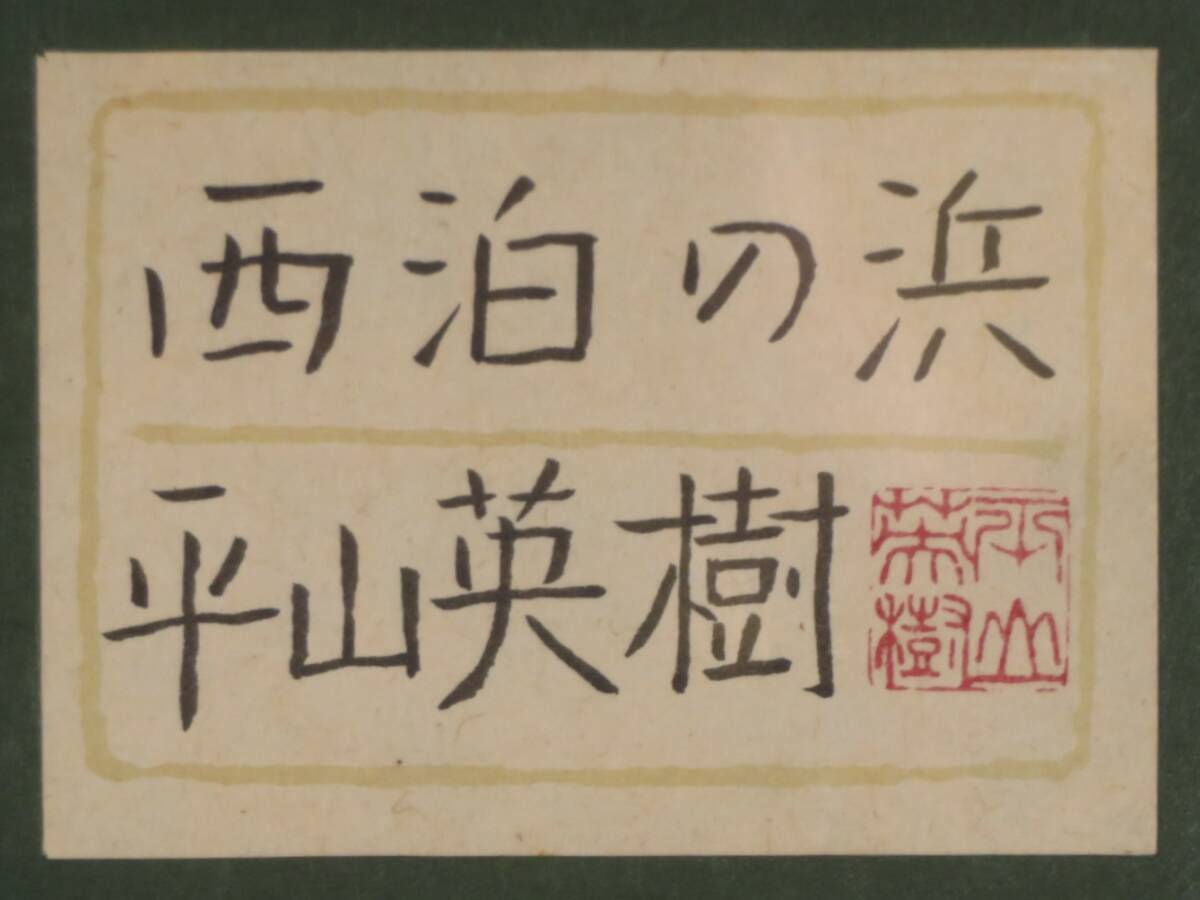 西泊の浜
平山英樹
平山英樹